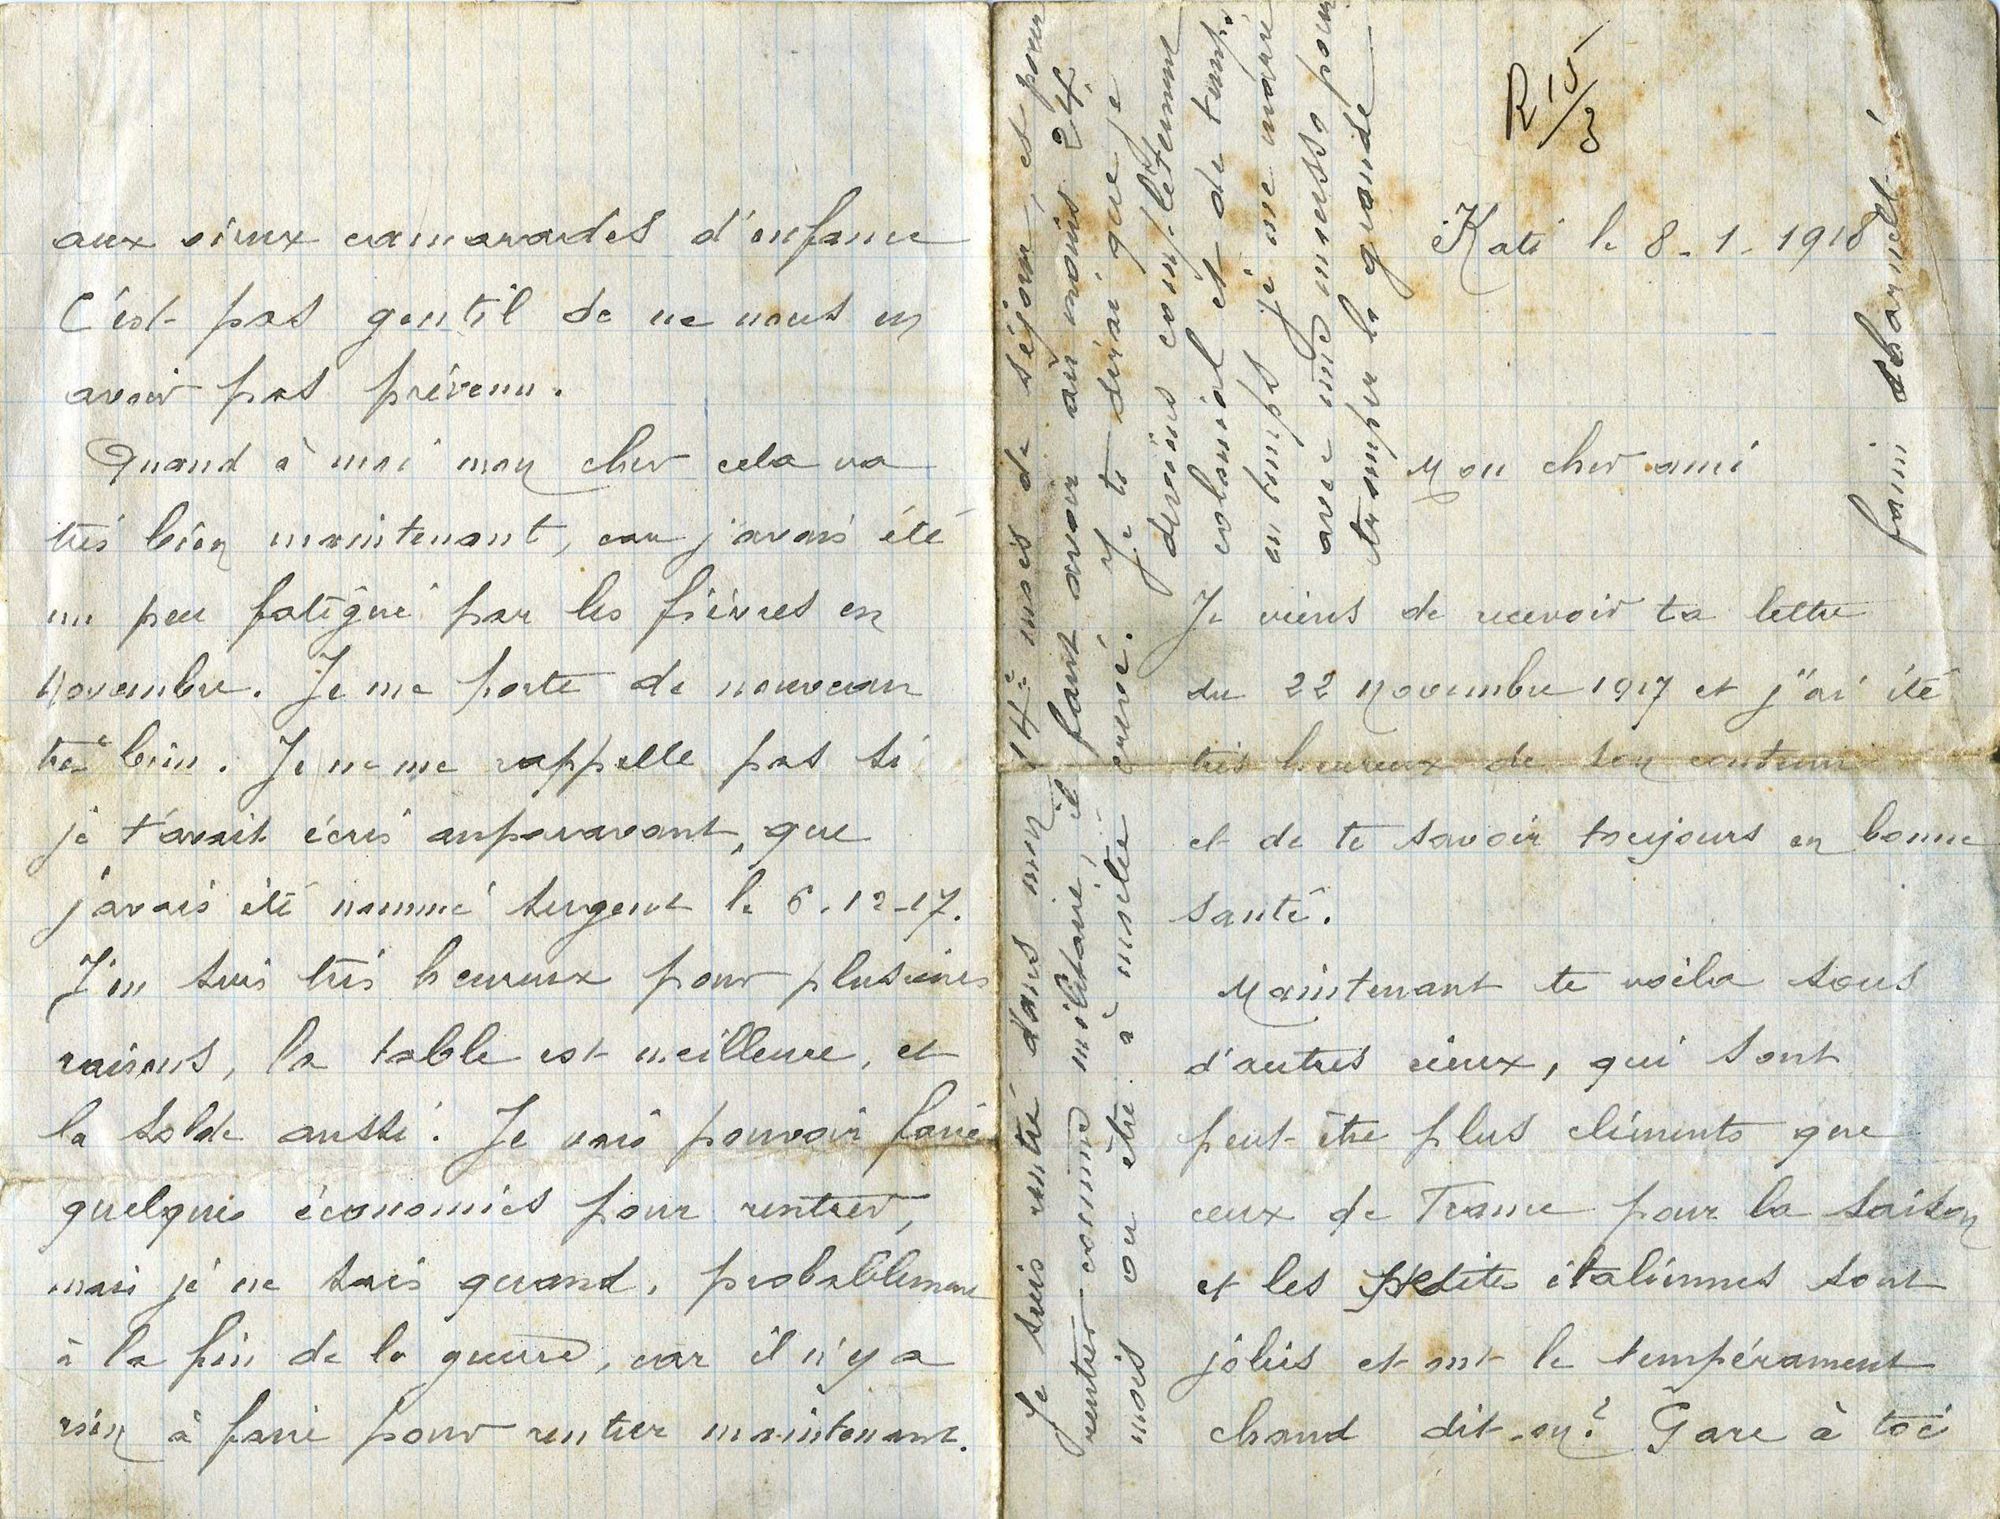 R 15/3
Kati le 8-1-1918
Mon cher ami
Je viens de recevoir ta lettre
du 22 Novembre 1917 et j'ai été
très heureux de son contenu
et de te savoir toujours en bonne
santé.
Maintenant te voila sous
d'autres cieux, qui sont
peut-être plus cléments que
ceux de France pour la saison
et les petites italiennes sont
jolies et ont le tempérament
chaud dit-on? Gare à toi
aux vieux camarades d'enfance
C'est pas gentil de ne nous en
avoir pas prévenu.
Quand à moi mon cher cela va
très bien maintenant, car j'avais été
un peu fatigué par les fièvres en
Novembre. Je me porte de nouveau
très bien. Je ne me rappelle pas si
je t'avait écris auparavant, que
j'avais été nommé sergent le 6-12-17.
J'en suis très heureux pour plusieurs
raisons, la table est meilleure, et
la solde aussi. Je vais pouvoir faire
quelques économies pour rentrer,
mais je ne sais quand, probablement
à la fin de la guerre, car il n'y a
rien à faire pour rentrer maintenant.
Je suis rentré dans mon 14e mois de séjour, et pour
rentrer comme militaire, il faut avoir au moins 24
mois ou être à moitié crevé. Je te dirai que je
deviens complètement
colonial et de temps
en temps je me marie
avec une mousso pour
tremper le
faim charnelle